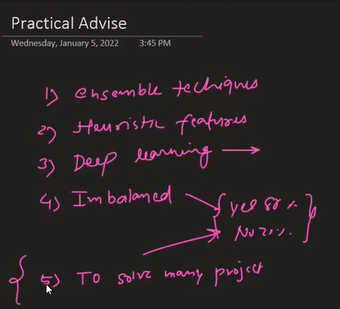 Practical Advise
Wednesday, January 5, 2022 3:45 PM
1) Ensemble techiques
2) Heuristic features
3) Deep learning →
4) Imbalanced
yes 80%
No 20%
5) To solve many project